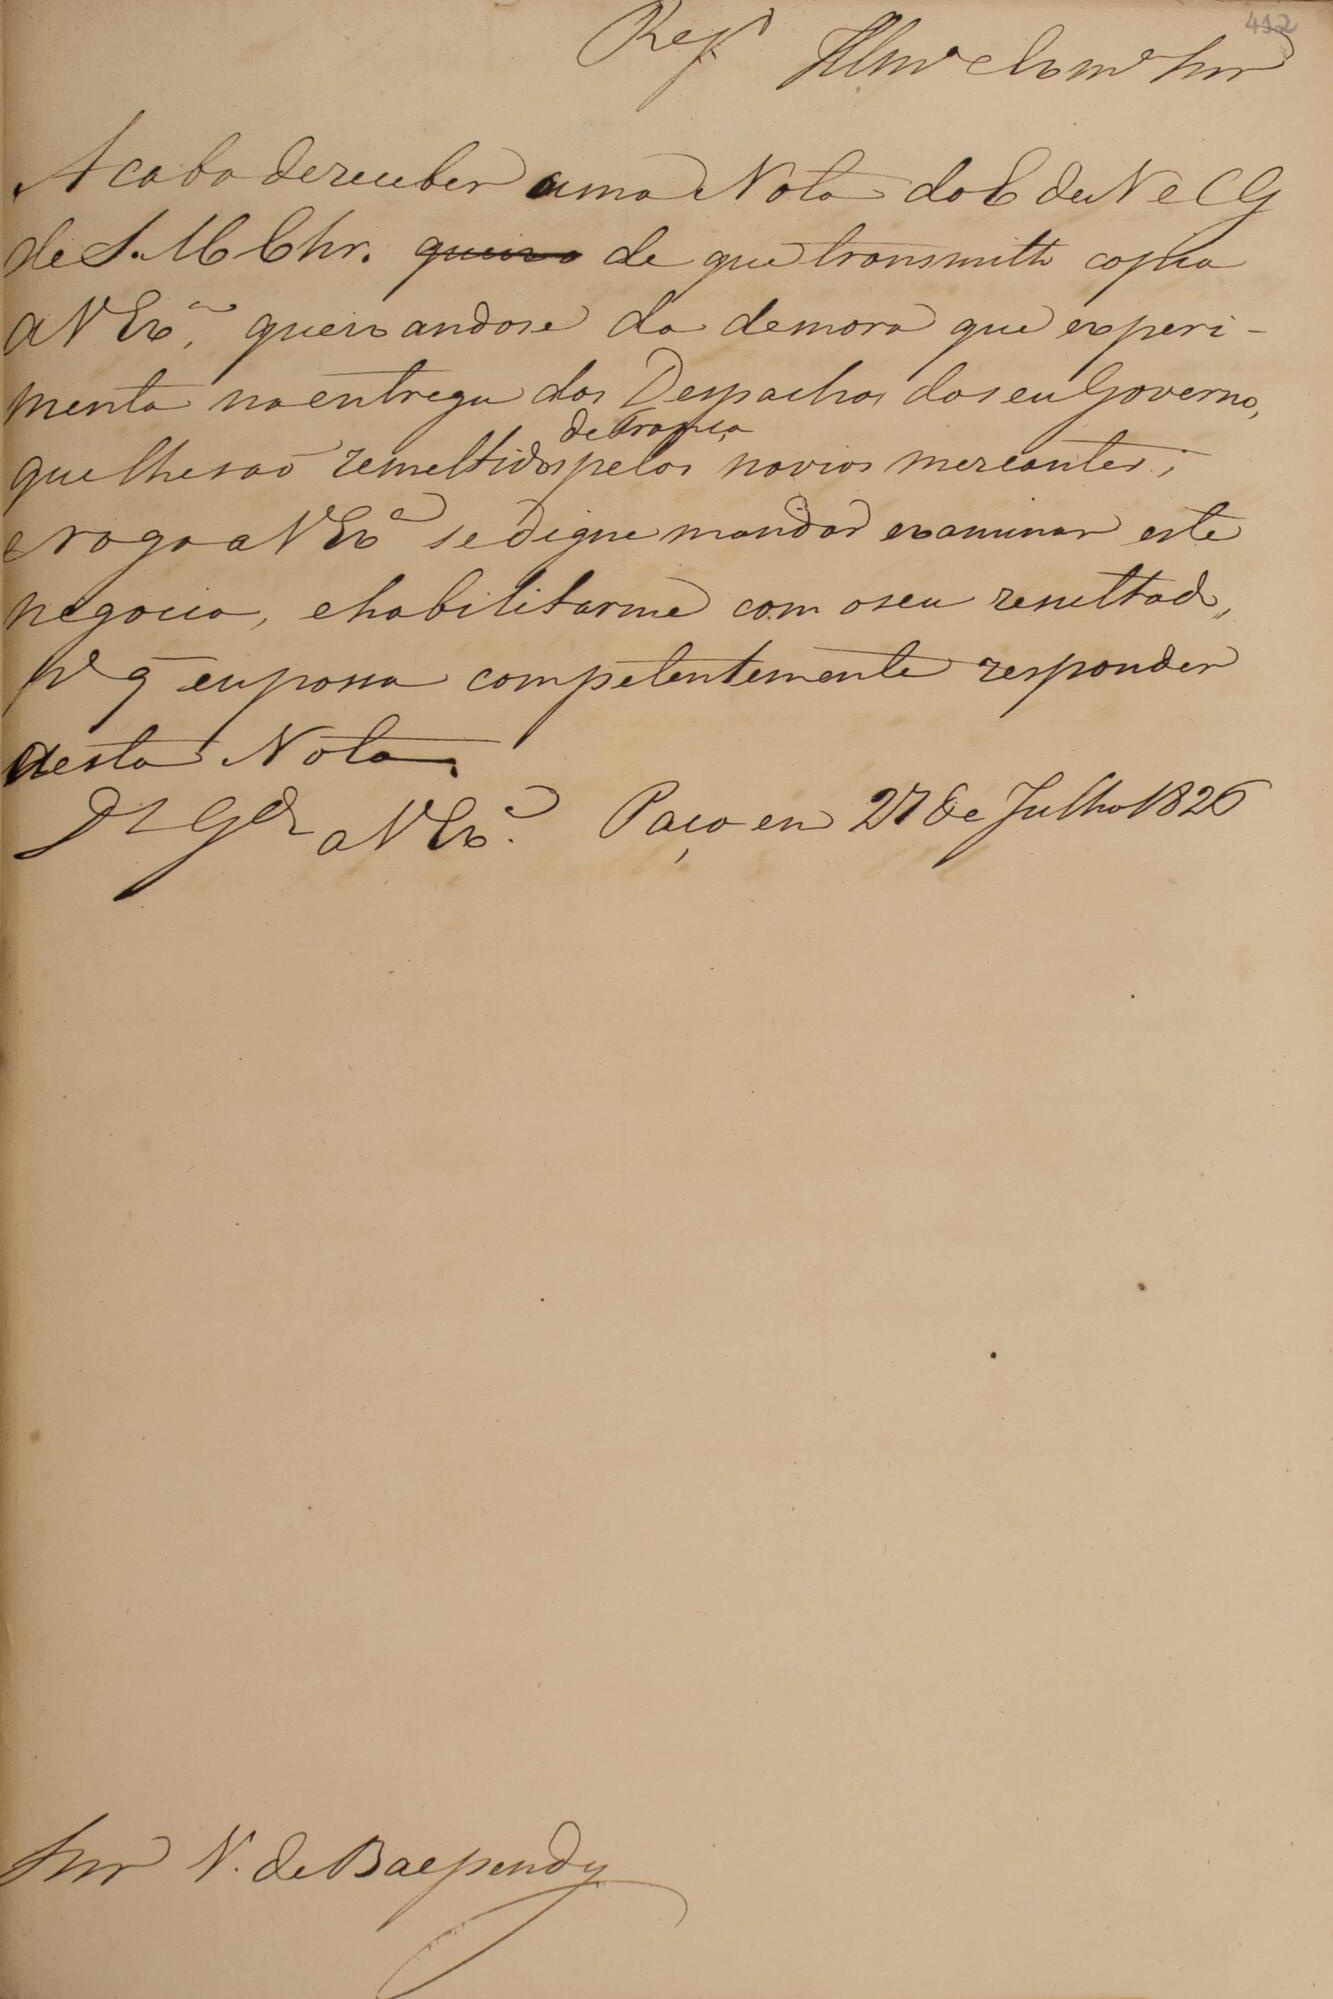 412
Regdo Illmo e Exmo Snr
Acabo de receber uma Nota do E de N e C G
de S. M Chr. queixo de que transmitto copia
a V Exª, queixandose da demora que experi-
menta na entrega dos Despachos do seu Governo,
que lhe são remettidos pelos navios mercantes;
de França
e rogo a V Exª se digne mandar examinar este
negocio, e habilitarme com o seu resultado,
pª q eu possa competentemente responder
a esta Nota.
Ds Gde a V Exª. Paço em 27 de Julho 1826
Snr V. de Baependy